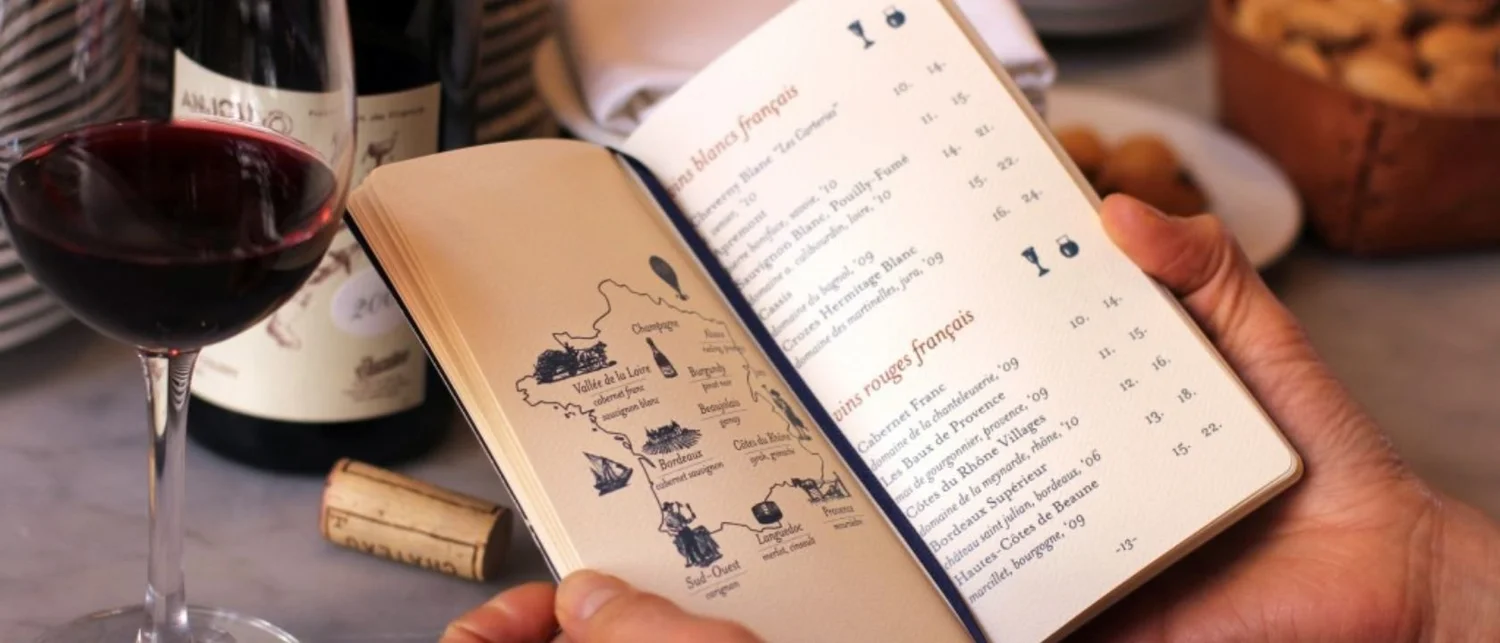 Champagne
Vallée de la Loire
cabernet franc
sauvignon blanc
Burgundy
pinot noir
Beaujolais
gamay
Bordeaux
cabernet sauvignon
Côtes du Rhône
syrah, grenache
Provence
Languedoc
merlot, cinsault
Sud-Ouest
vins blancs français
Cheverny Blanc "Les Carteries" 10. 14.
'10
Apremont 11. 15.
'10
Sauvignon Blanc, Pouilly-Fumé 14. 21.
domaine a. cailbourdin, loire, '10
Cassis 15. 22.
domaine du bagnol, '09
Crozes Hermitage Blanc 16. 24.
domaine des martinelles, jura, '09
vins rouges français
Cabernet Franc 10. 14.
domaine de la chanteleuserie, '09
Les Baux de Provence 11. 15.
mas de gourgonnier, provence, '09
Côtes du Rhône Villages 12. 16.
domaine de la meynarde, rhône, '10
Bordeaux Supérieur 13. 18.
château saint julian, bordeaux, '06
Hautes-Côtes de Beaune 15. 22.
marcillet, bourgogne, '09
-13-
CHATEAU